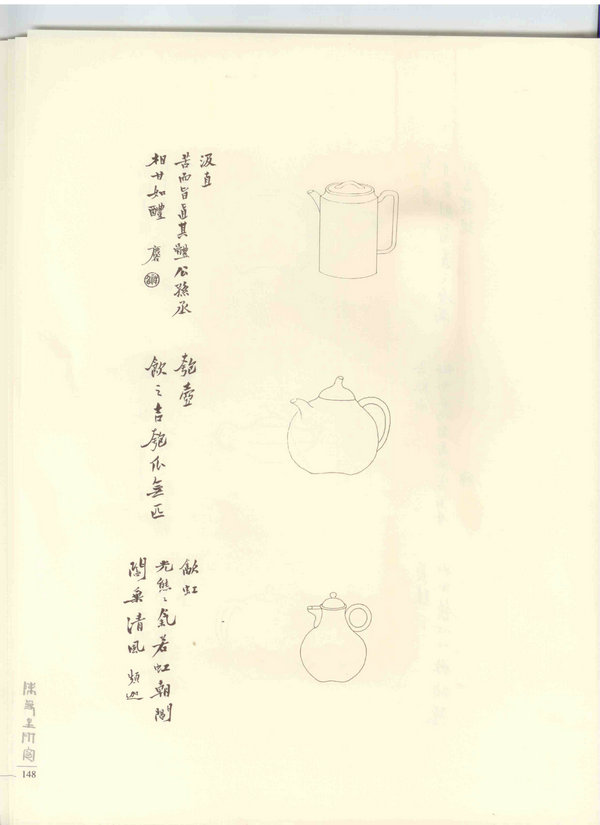 汲直
苦而旨直其體公孫丞
相甘如醴 麐
匏壺
飲之吉匏瓜無匹
㱃虹
光熊々氣若虹朝閶
闔乘清風 頻迦
陳曼生研究
148